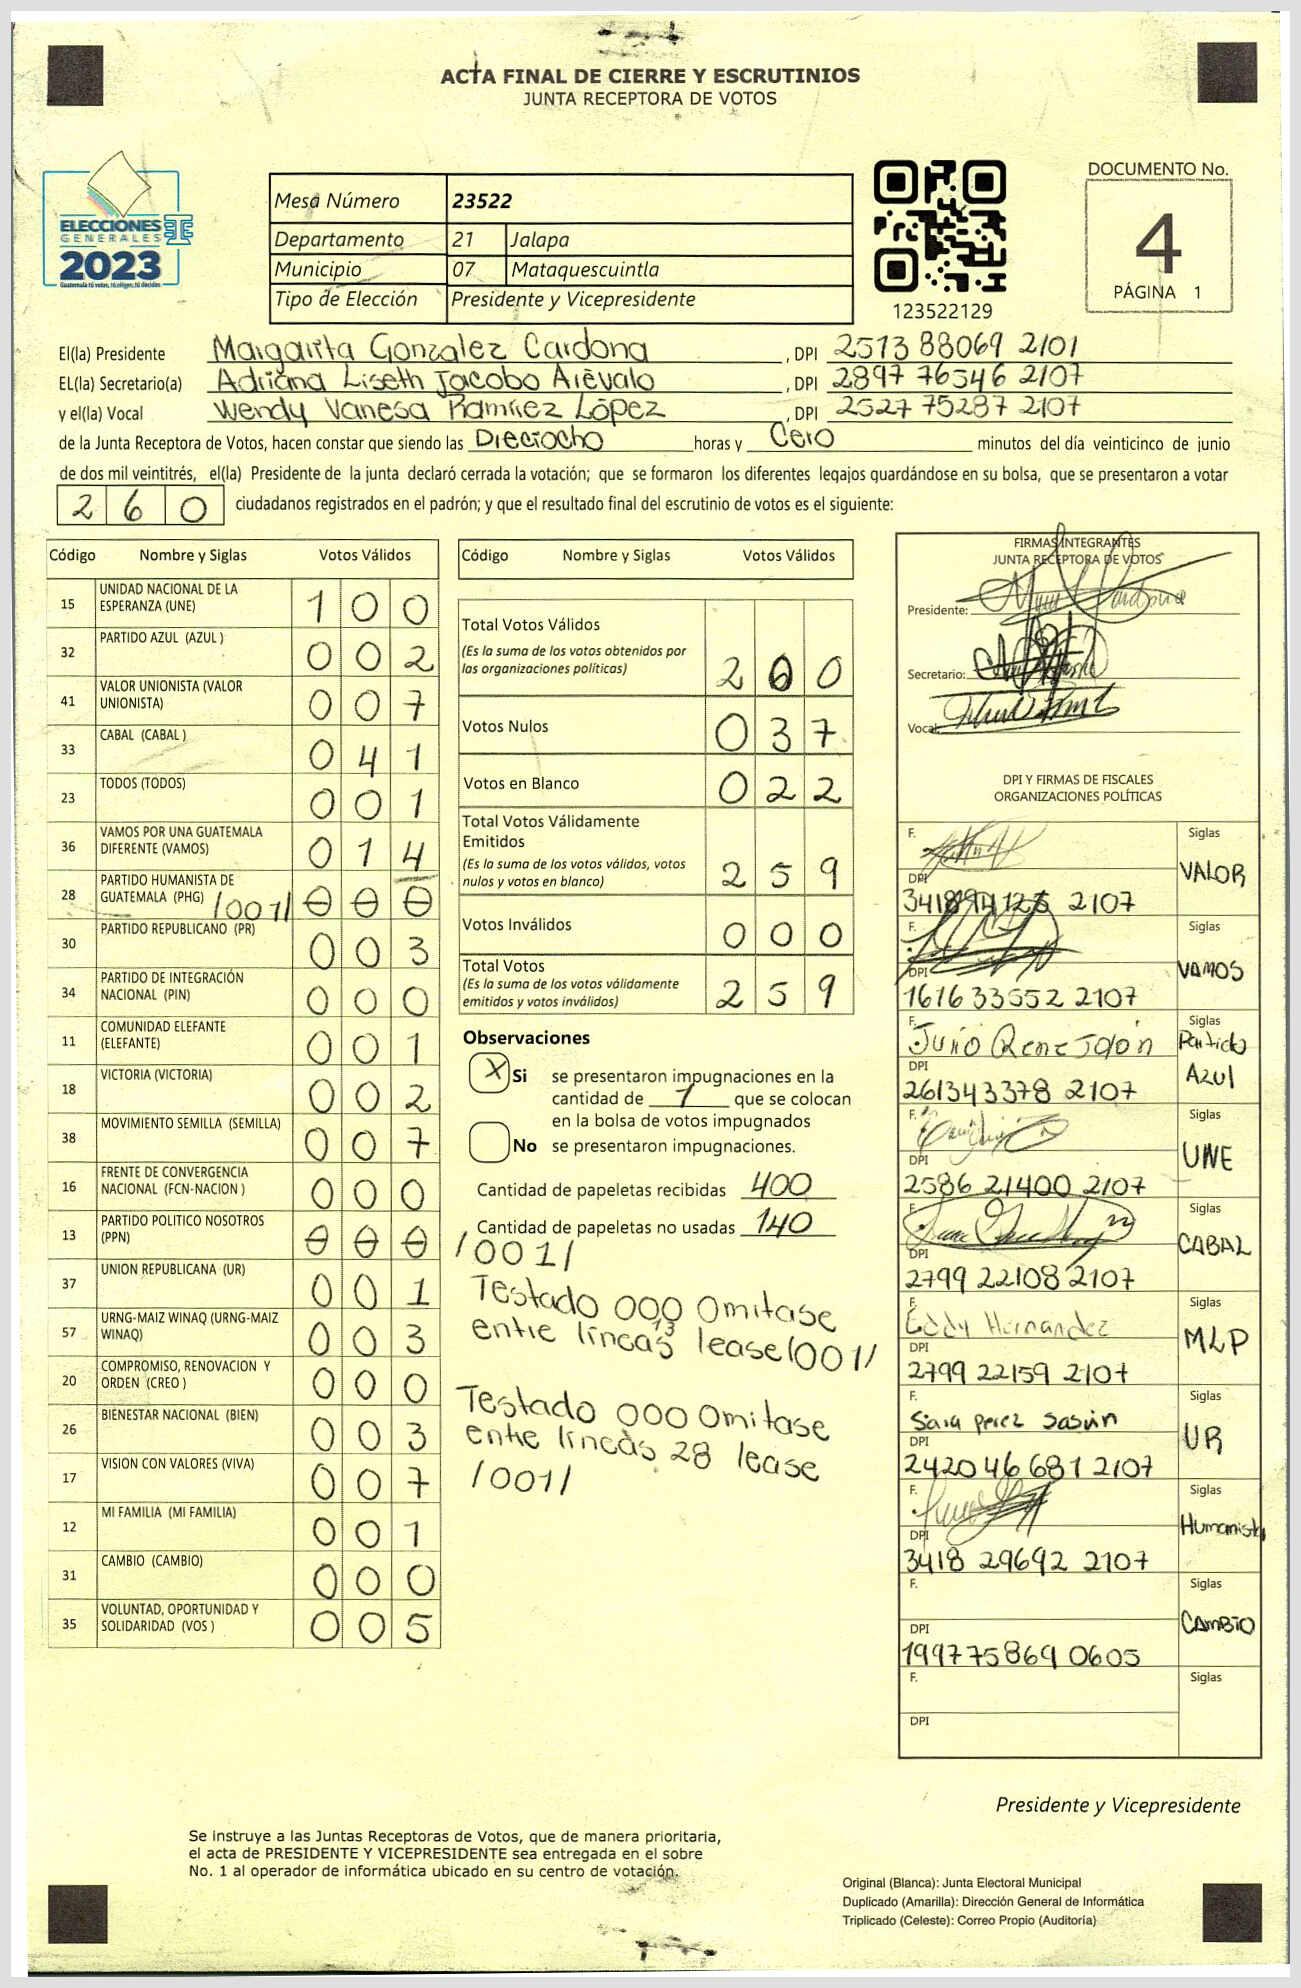 ACTA FINAL DE CIERRE Y ESCRUTINIOS
JUNTA RECEPTORA DE VOTOS
ELECCIONES
GENERALES
2023
Guatemala tú votas, tú eliges, tú decides
Mesa Número 23522
Departamento 21 Jalapa
Municipio 07 Mataquescuintla
Tipo de Elección Presidente y Vicepresidente
123522129
DOCUMENTO No.
4
PÁGINA 1
El(la) Presidente Margarita Gonzalez Cardona, DPI 2513 88069 2101
EL(la) Secretario(a) Adriana Liseth Jacobo Arévalo, DPI 2897 76546 2107
y el(la) Vocal Wendy Vanesa Ramírez López, DPI 2527 75287 2107
de la Junta Receptora de Votos, hacen constar que siendo las Dieciocho horas y Cero minutos del día veinticinco de junio
de dos mil veintitrés, el(la) Presidente de la junta declaró cerrada la votación; que se formaron los diferentes legajos guardándose en su bolsa, que se presentaron a votar
2 6 0 ciudadanos registrados en el padrón; y que el resultado final del escrutinio de votos es el siguiente:
Código Nombre y Siglas Votos Válidos
15 UNIDAD NACIONAL DE LA ESPERANZA (UNE) 1 0 0
32 PARTIDO AZUL (AZUL ) 0 0 2
41 VALOR UNIONISTA (VALOR UNIONISTA) 0 0 7
33 CABAL (CABAL ) 0 4 1
23 TODOS (TODOS) 0 0 1
36 VAMOS POR UNA GUATEMALA DIFERENTE (VAMOS) 0 1 4
28 PARTIDO HUMANISTA DE GUATEMALA (PHG) /001/ 0 0 0
30 PARTIDO REPUBLICANO (PR) 0 0 3
34 PARTIDO DE INTEGRACIÓN NACIONAL (PIN) 0 0 0
11 COMUNIDAD ELEFANTE (ELEFANTE) 0 0 1
18 VICTORIA (VICTORIA) 0 0 2
38 MOVIMIENTO SEMILLA (SEMILLA) 0 0 7
16 FRENTE DE CONVERGENCIA NACIONAL (FCN-NACION ) 0 0 0
13 PARTIDO POLITICO NOSOTROS (PPN) 0 0 0 /001/
37 UNION REPUBLICANA (UR) 0 0 1
57 URNG-MAIZ WINAQ (URNG-MAIZ WINAQ) 0 0 3
20 COMPROMISO, RENOVACION Y ORDEN (CREO ) 0 0 0
26 BIENESTAR NACIONAL (BIEN) 0 0 3
17 VISION CON VALORES (VIVA) 0 0 7
12 MI FAMILIA (MI FAMILIA) 0 0 1
31 CAMBIO (CAMBIO) 0 0 0
35 VOLUNTAD, OPORTUNIDAD Y SOLIDARIDAD (VOS ) 0 0 5
Código Nombre y Siglas Votos Válidos
Total Votos Válidos
(Es la suma de los votos obtenidos por
las organizaciones políticas) 2 0 0
Votos Nulos 0 3 7
Votos en Blanco 0 2 2
Total Votos Válidamente
Emitidos
(Es la suma de los votos válidos, votos
nulos y votos en blanco) 2 5 9
Votos Inválidos 0 0 0
Total Votos
(Es la suma de los votos válidamente
emitidos y votos inválidos) 2 5 9
Observaciones
X Si se presentaron impugnaciones en la
cantidad de 1 que se colocan
en la bolsa de votos impugnados
No se presentaron impugnaciones.
Cantidad de papeletas recibidas 400
Cantidad de papeletas no usadas 140
Testado 000 Omitase
entre líneas 13 lease /001/
Testado 000 Omitase
entre líneas 28 lease
/001/
FIRMAS INTEGRANTES
JUNTA RECEPTORA DE VOTOS
Presidente:
Secretario:
Vocal:
DPI Y FIRMAS DE FISCALES
ORGANIZACIONES POLÍTICAS
F. Siglas
VALOR
DPI
341894125 2107
F. Siglas
VAMOS
DPI
1616 33552 2107
F. Siglas
Julio Rene Jolón Partido
DPI Azul
261343378 2107
F. Siglas
UNE
DPI
2586 21400 2107
F. Siglas
CABAL
DPI
2799 22108 2107
F. Siglas
Eddy Hernandez MLP
DPI
2799 22159 2107
F. Siglas
Sara perez UR
DPI
2420 46 681 2107
F. Siglas
Humanista
DPI
3418 29692 2107
F. Siglas
CAMBIO
DPI
199775869 0605
F. Siglas
DPI
Presidente y Vicepresidente
Se instruye a las Juntas Receptoras de Votos, que de manera prioritaria,
el acta de PRESIDENTE Y VICEPRESIDENTE sea entregada en el sobre
No. 1 al operador de informática ubicado en su centro de votación.
Original (Blanca): Junta Electoral Municipal
Duplicado (Amarilla): Dirección General de Informática
Triplicado (Celeste): Correo Propio (Auditoría)